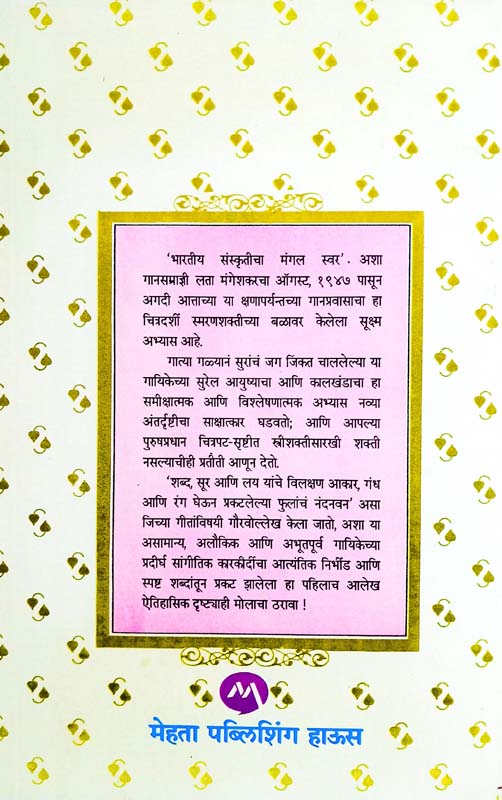 ‘भारतीय संस्कृतीचा मंगल स्वर’. अशा
गानसम्राज्ञी लता मंगेशकरचा ऑगस्ट, १९४७ पासून
अगदी आत्ताच्या या क्षणापर्यन्तच्या गानप्रवासाचा हा
चित्रदर्शी स्मरणशक्तीच्या बळावर केलेला सूक्ष्म
अभ्यास आहे.
गात्या गळ्यानं सुरांचं जग जिंकत चाललेल्या या
गायिकेच्या सुरेल आयुष्याचा आणि कालखंडाचा हा
समीक्षात्मक आणि विश्लेषणात्मक अभ्यास नव्या
अंतर्दृष्टीचा साक्षात्कार घडवतो; आणि आपल्या
पुरुषप्रधान चित्रपट-सृष्टीत स्त्रीशक्तीसारखी शक्ती
नसल्याचीही प्रतीती आणून देतो.
‘शब्द, सूर आणि लय यांचे विलक्षण आकार, गंध
आणि रंग घेऊन प्रकटलेल्या फुलांचं नंदनवन’ असा
जिच्या गीतांविषयी गौरवोल्लेख केला जातो, अशा या
असामान्य, अलौकिक आणि अभूतपूर्व गायिकेच्या
प्रदीर्घ सांगीतिक कारकीर्दीचा आत्यंतिक निर्भीड आणि
स्पष्ट शब्दांतून प्रकट झालेला हा पहिलाच आलेख
ऐतिहासिक दृष्ट्याही मोलाचा ठरावा !
मेहता पब्लिशिंग हाऊस